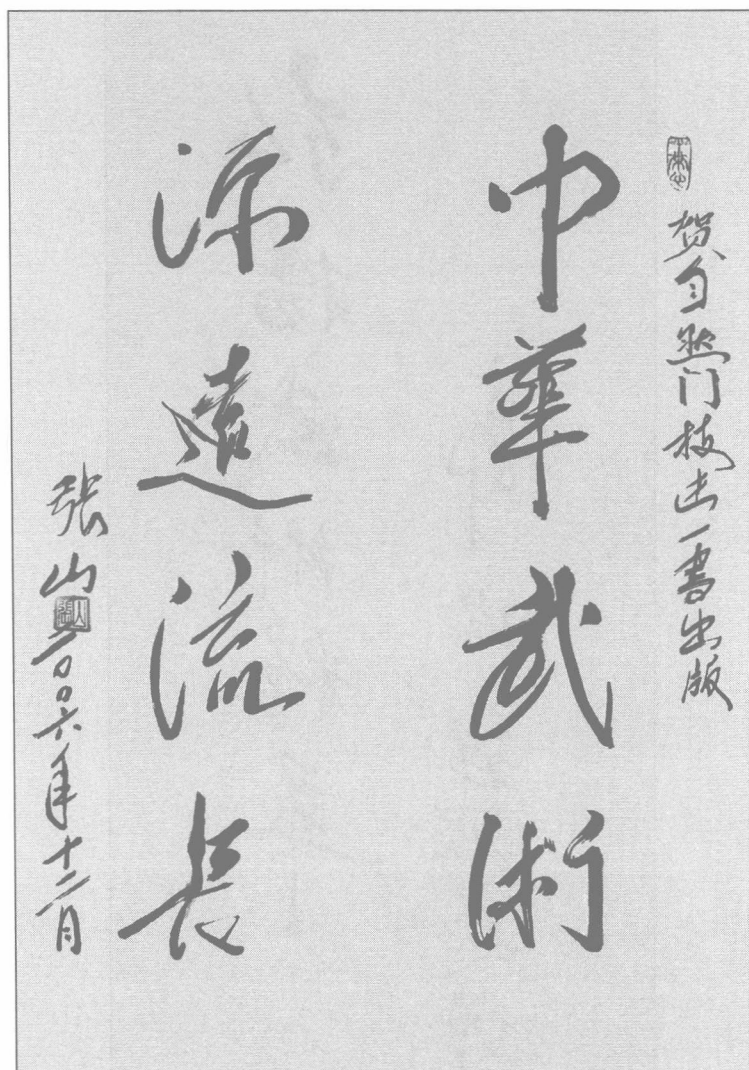 贺自然门技击一书出版
中華武術
源遠流長
張山
二〇〇六年十二月